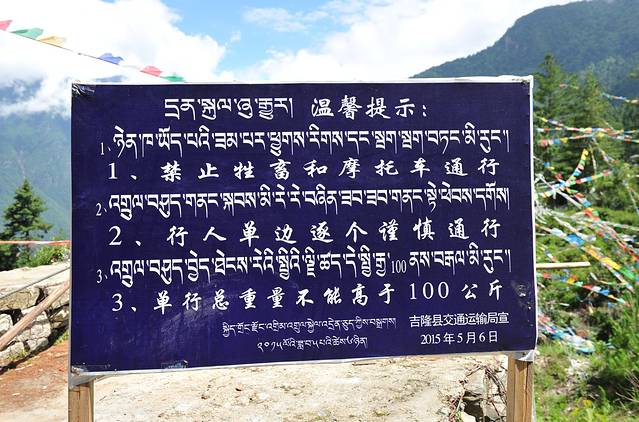 དྲན་སྐུལ་ཞུ་རྒྱུར། 温馨提示：
1、ཉེན་ཁ་ཡོད་པའི་ཟམ་པར་ཕྱུགས་རིགས་དང་སྦག་སྦག་བཏང་མི་རུང་།
1、禁止牲畜和摩托车通行
2、འགྲུལ་བཤུད་གནང་སྐབས་མི་རེ་རེ་བཞིན་ཟབ་ཟབ་གནང་སྟེ་ཕེབས་དགོས།
2、行人单边逐个谨慎通行
3、འགྲུལ་བཤུད་བྱེད་ཐེངས་རེའི་སྤྱིའི་ལྗིད་ཚད་དེ་སྤྱི་རྒྱ་100ནས་བརྒལ་མི་རུང་།
3、单行总重量不能高于100公斤
སྐྱིད་གྲོང་རྫོང་འགྲིམ་འགྲུལ་སྐྱེལ་འདྲེན་ཅུད་ཀྱིས་བསྒྲགས། 吉隆县交通运输局宣
༢༠༡༥ལོའི་ཟླ་བ༥པའི་ཚེས༦ཉིན། 2015年5月6日